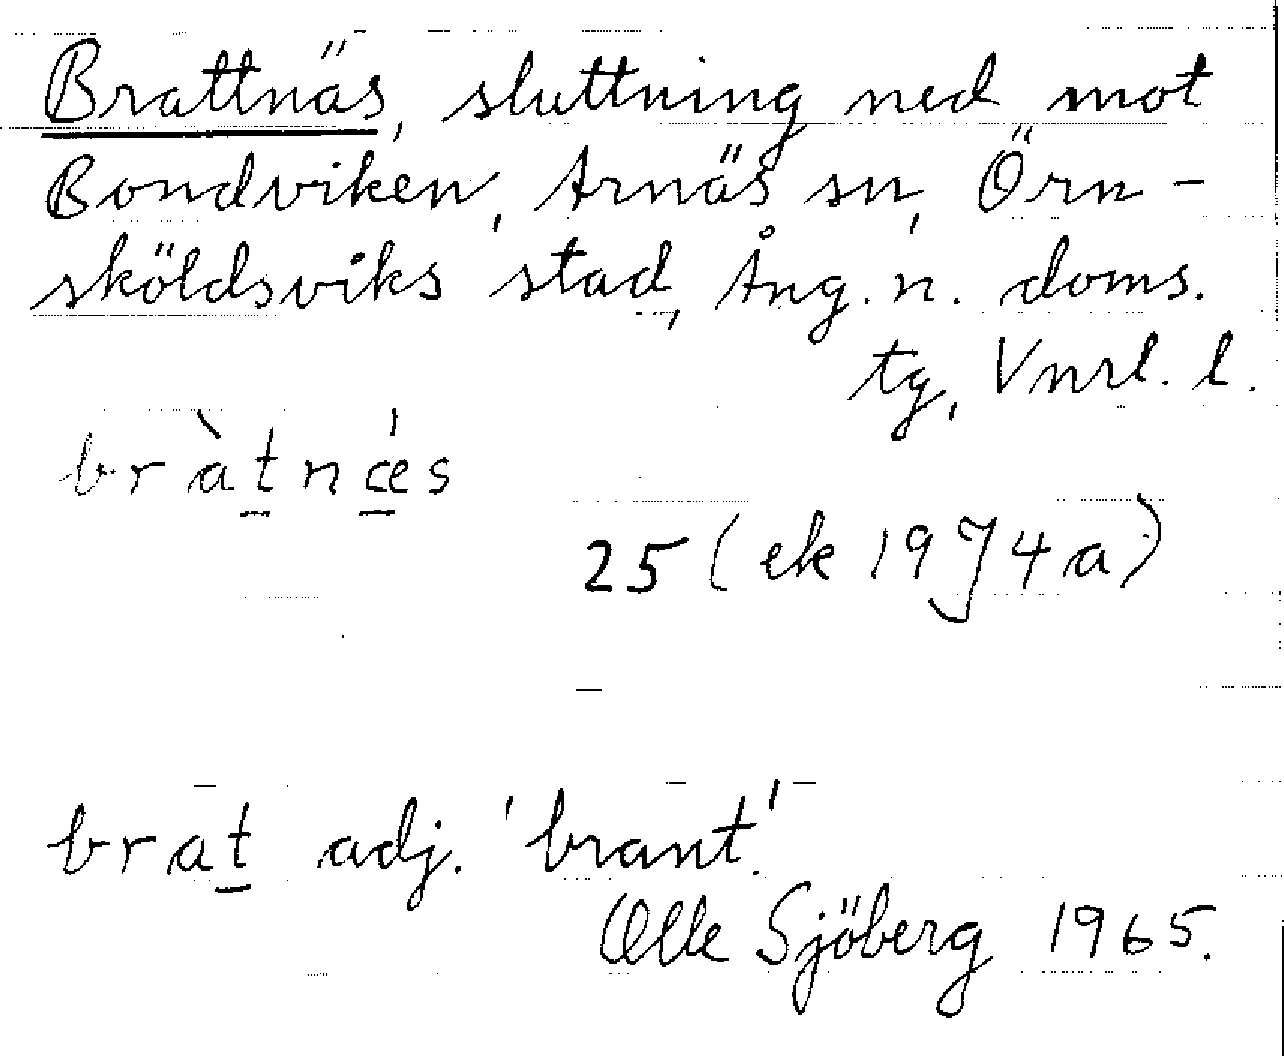 Brattnäs, sluttning ned mot
Bondviken, Arnäs sn, Örn-
sköldsviks stad, Ång. n. doms.
tg, Vnrl. l.
bràt̲nǽ̲s
25 (ek 19J4a)
brat̲ adj. 'brant'.
Olle Sjöberg 1965.